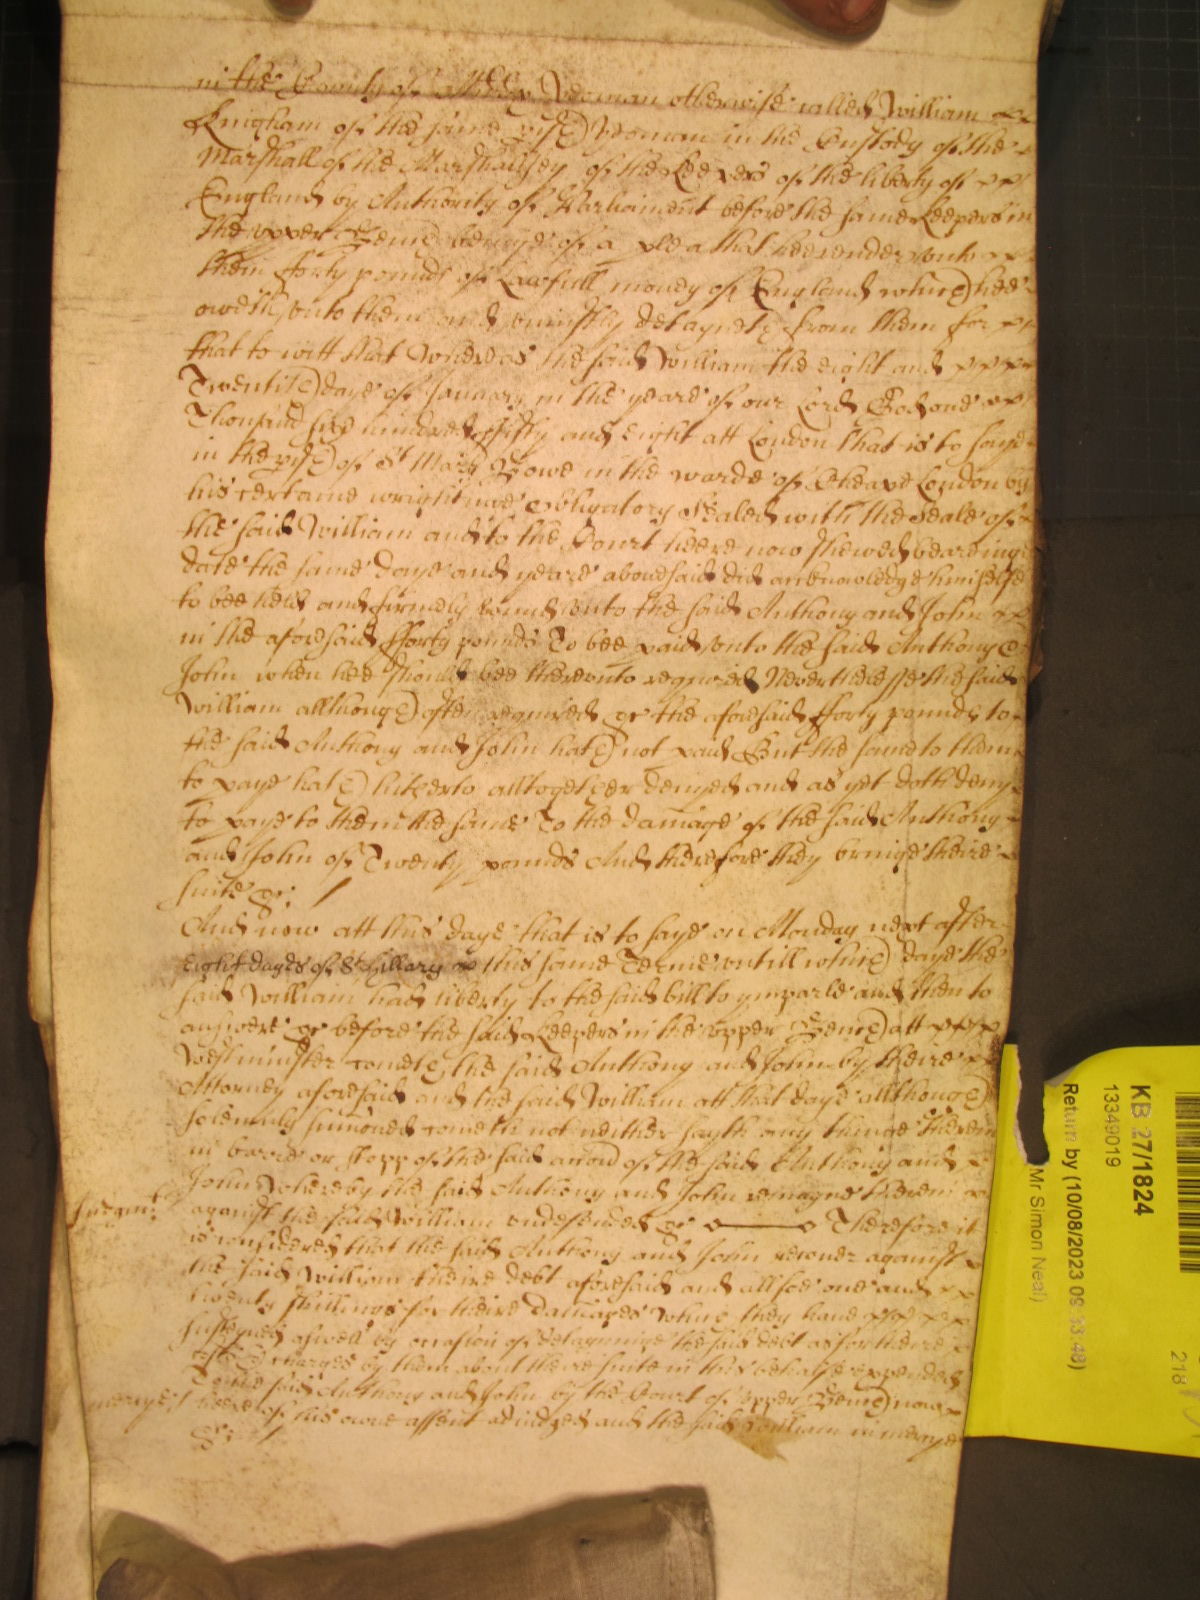 in the County of Midd Yeoman otherwise called William
Kingham of the same pish Yeoman in the Custody of the
Marshall of the Marshallsey of the Keepers of the liberty of
England by Authority of Parliament before the same Keepers in
the upper Bench beinge of a plea that hee render unto
them fforty pounds of Lawfull money of England which hee
oweth unto them and uniustly detayneth from them for
that to witt that Whereas the said William the eight and
Twentith daye of January in the yeare of our Lord God one
Thousand six hundred fifty and eight att London that is to saye
in the pish of St Mary Bowe in the warde of Cheape London by
his certaine wrightinge obligatory Sealed with the Seale of
the said William and to the Court heere now shewed beareinge
date the same daye and yeare abovesaid did acknowledge himselfe
to bee held and firmely bound unto the said Anthony and John
in the aforesaid fforty pounds To bee paid unto the said Anthony &
John when hee should bee thereunto required Neverthelesse the said
William allthough often required &c the aforesaid fforty pounds to
the said Anthony and John hath not paid But the same to them
to paye hath hitherto alltogether denyed and as yet doth deny
to paye to them the same To the damage of the said Anthony
and John of Twenty pounds And therefore they bringe theire
suite &c:
And now att this daye that is to saye on Monday next after
eight dayes of St Hillary this same Terme untill which daye the
said William had liberty to the said bill to ymparle and then to
answere &c before the said Keepers in the upper Bench att
Westminster cometh the said Anthony and John by theire
Attorney aforesaid and the said William att that daye allthough
solemnly sumoned cometh not neither sayth any thinge therein
in barre or stopp of the said accon of the said Anthony and
John Whereby the said Anthony and John remayne therein
Judgmt
against the said William undefended &c Therefore it
is considered that the said Anthony and John recover against
the said William theire debt aforesaid and allsoe one and
twenty shillings for theire damages which they have
susteyned aswell by occasion of detayninge the said debt as for theire
costs & charges by them about theire suite in this behalfe expended
To the said Anthony and John by the Court of upper Bench now
mercye
heere of his owne assent adiudged and the said William in mercye
&c:
KB 27/1824
13349019
Return by (10/08/2023 09:33:48)
Mr Simon Neal)
218